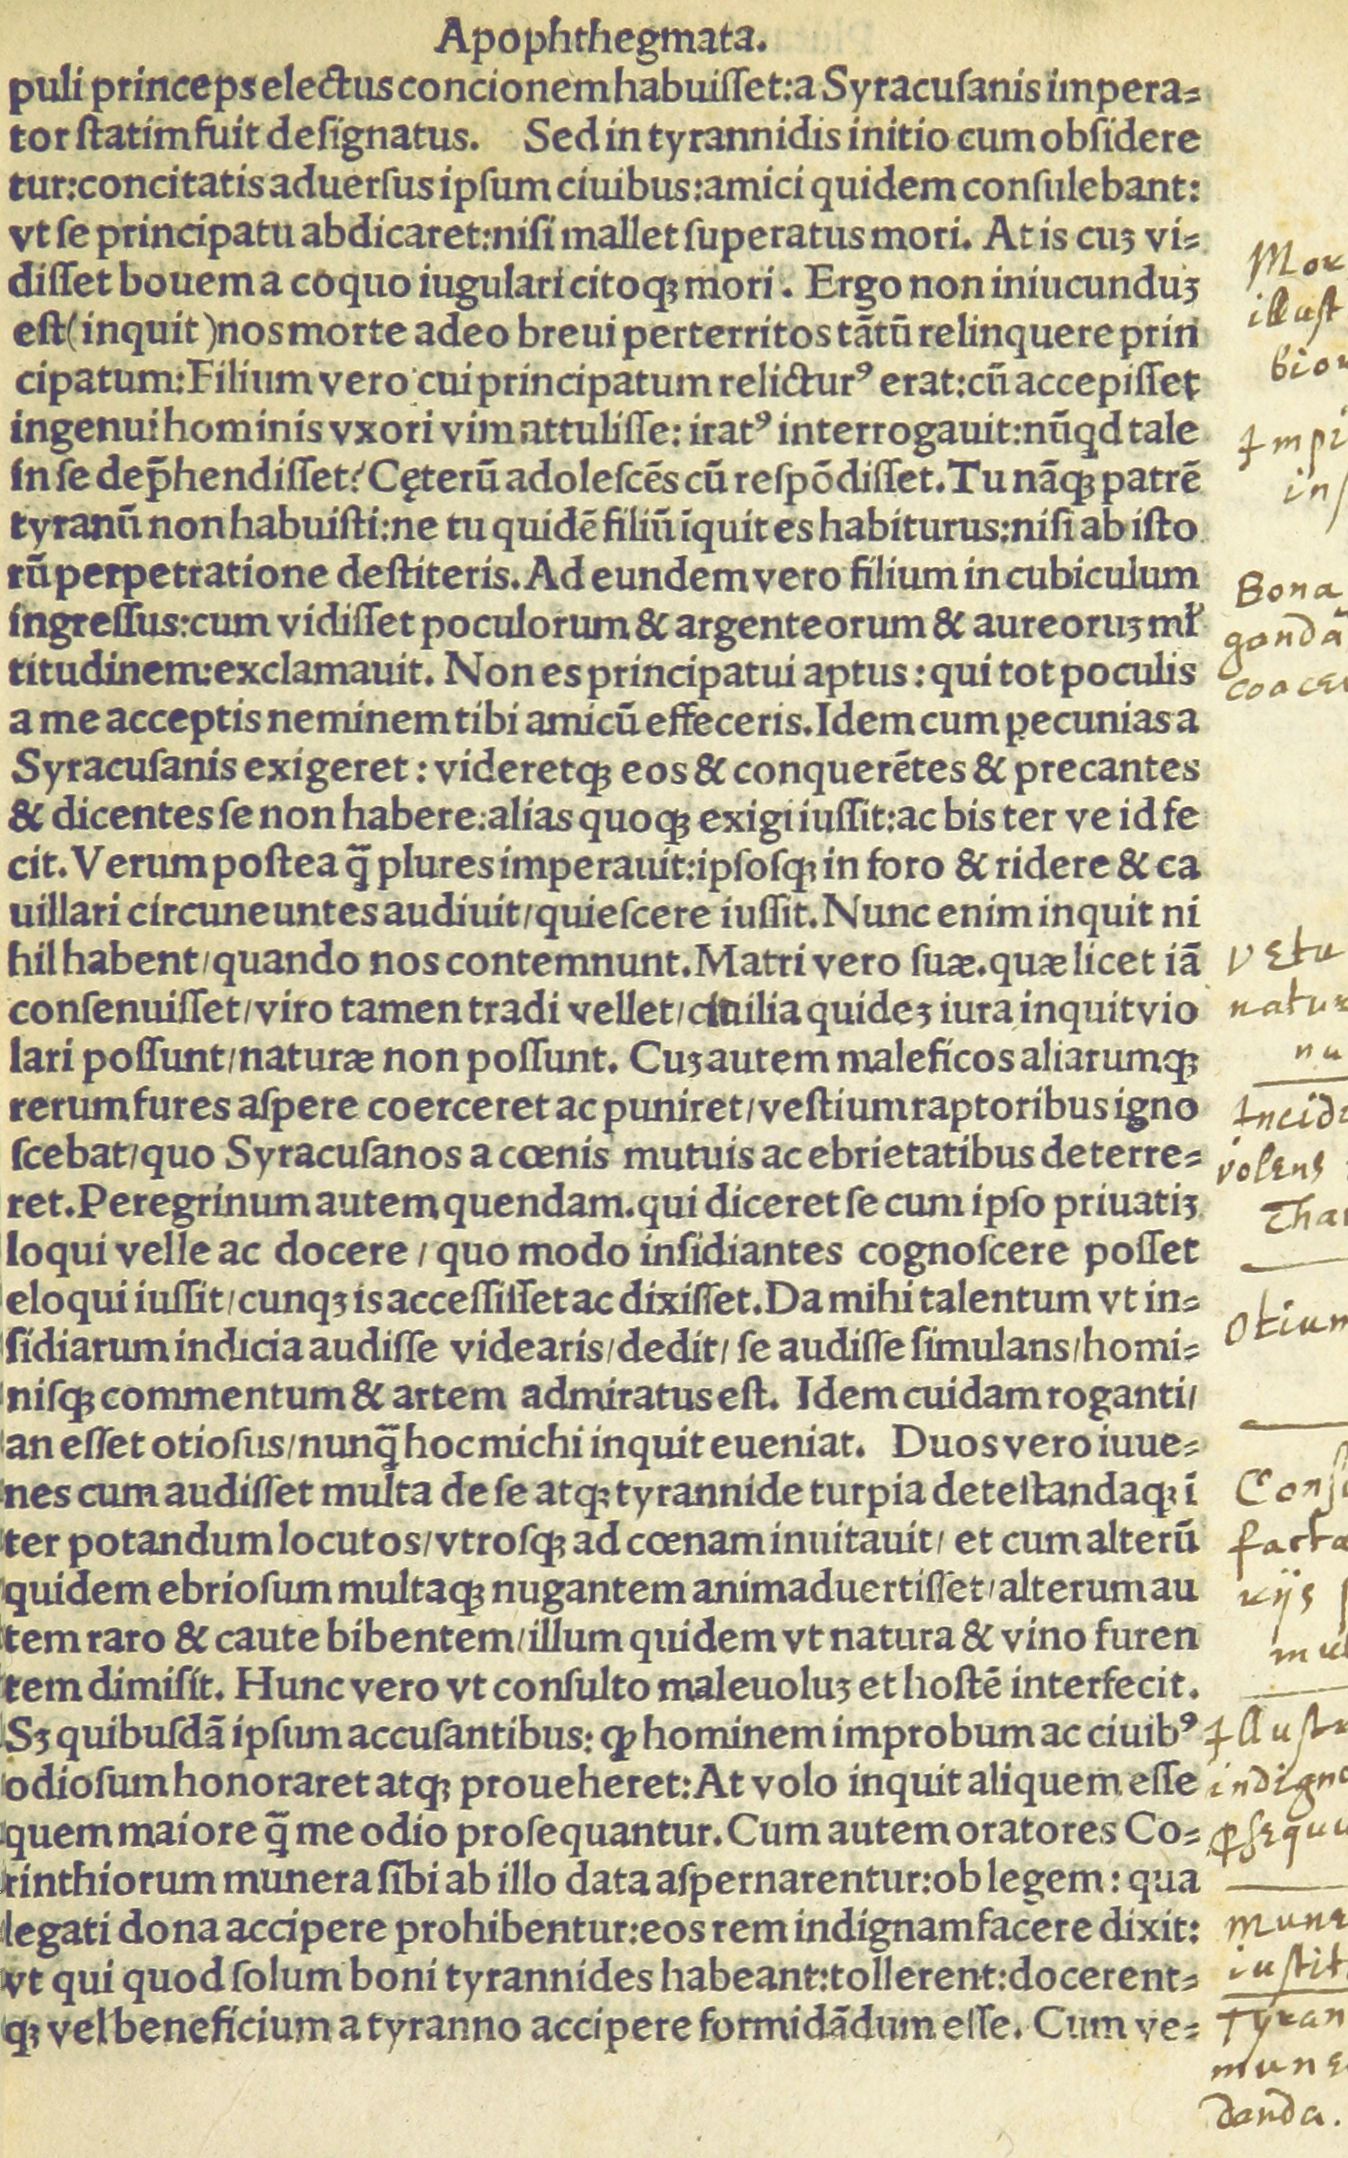 Apophthegmata.
puli princeps electus concionem habuiſſet: a Syracuſanis impera⸗
tor ſtatim fuit deſignatus. Sed in tyrannidis initio cum obſidere
tur: concitatis aduerſus ipſum ciuibus: amici quidem conſulebant:
vt ſe principatu abdicaret: niſi mallet ſuperatus mori. At is cuꝫ vi⸗
diſſet bouem a coquo iugulari citoqꝫ mori. Ergo non iniucunduꝫ
Mor
eſt (inquit) nos morte adeo breui perterritos tãtũ relinquere prin
illuſt
cipatum: Filium vero cui principatum relictur⁹ erat: cũ accepiſſet
bion
ingenui hominis vxori vim attuliſſe: irat⁹ interrogauit: nũqd tale
in ſe dep̃hendiſſet? Cęterũ adoleſcẽs cũ reſpõdiſſet. Tu nãqꝫ patrẽ
tyranũ non habuiſti: ne tu quidẽ filiũ ĩquit es habiturus: niſi ab iſto
rũ perpetratione deſtiteris. Ad eundem vero filium in cubiculum
Bona
ingreſſus: cum vidiſſet poculorum & argenteorum & aureoruꝫ ml̃
gonda
titudinem: exclamauit. Non es principatui aptus: qui tot poculis
a me acceptis neminem tibi amicũ effeceris. Idem cum pecunias a
Syracuſanis exigeret: videretqꝫ eos & conquerẽtes & precantes
& dicentes ſe non habere: alias quoqꝫ exigi iuſſit: ac bis ter ve id fe
cit. Verum poſtea q̃ plures imperauit: ipſoſqꝫ in foro & ridere & ca
uillari circuneuntes audiuit/ quieſcere iuſſit. Nunc enim inquit ni
hil habent/ quando nos contemnunt. Matri vero ſuæ. quæ licet iã
vetu
conſenuiſſet/ viro tamen tradi vellet/ ciuilia quideꝫ iura inquit vio
natur
lari poſſunt/ naturæ non poſſunt. Cuꝫ autem maleficos aliarumqꝫ
nu
rerum fures aſpere coerceret ac puniret/ veſtium raptoribus igno
Incid
ſcebat/ quo Syracuſanos a cœnis mutuis ac ebrietatibus deterre⸗
volens
ret. Peregrinum autem quendam. qui diceret ſe cum ipſo priuatiꝫ
loqui velle ac docere/ quo modo inſidiantes cognoſcere poſſet
eloqui iuſſit/ cunqꝫ is acceſſiſſet ac dixiſſet. Da mihi talentum vt in⸗
otium
ſidiarum indicia audiſſe videaris/ dedit/ ſe audiſſe ſimulans/ homi⸗
niſqꝫ commentum & artem admiratus eſt. Idem cuidam roganti/
an eſſet otioſus/ nunq̃ hoc michi inquit eueniat. Duos vero iuue⸗
nes cum audiſſet multa de ſe atqꝫ tyrannide turpia deteſtandaqꝫ ĩ
Conſ
ter potandum locutos/ vtroſqꝫ ad cœnam inuitauit/ et cum alterũ
facta
quidem ebrioſum multaqꝫ nugantem animaduertiſſet/ alterum au
rijs
tem raro & caute bibentem/ illum quidem vt natura & vino furen
tem dimiſit. Hunc vero vt conſulto maleuoluꝫ et hoſtẽ interfecit.
Sꝫ quibuſdã ipſum accuſantibus: ꝙ hominem improbum ac ciuib⁹
Illuſtr
odioſum honoraret atqꝫ proueheret: At volo inquit aliquem eſſe
indign
quem maiore q̃ me odio proſequantur. Cum autem oratores Co⸗
ꝓſequu
rinthiorum munera ſibi ab illo data aſpernarentur: ob legem: qua
legati dona accipere prohibentur: eos rem indignam facere dixit:
mune
vt qui quod ſolum boni tyrannides habeant: tollerent: docerent⸗
iuſtit
qꝫ vel beneficium a tyranno accipere formidãdum eſſe. Cum ve⸗
Tyran
mune
danda.